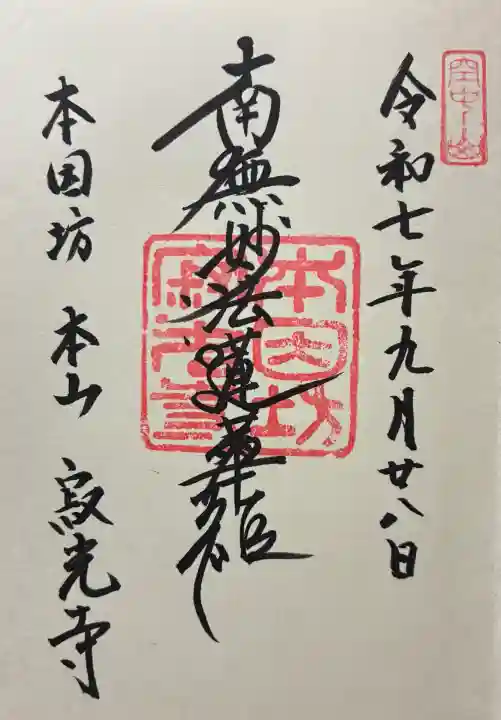 令和七年九月廿八日
南無妙法蓮華経
本因坊 本山 寂光寺
本因坊